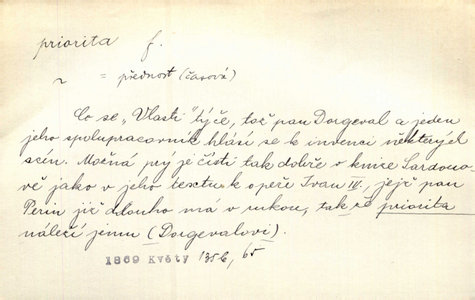 priorita f.
~ = přednost (časová)
Co se „Vlasti" týče, toť pan Dorgeval a jeden
jeho spolupracovník hlásí se k invenci některých
scén. Možná prý je čísti tak dobře v knize Sardouo-
vě jako v jeho textu k opeře Ivan IV., jejž pan
Perin již dlouho má v rukou, tak že priorita
náleží jemu (Dorgevalovi).
1869 Květy 135b, 65